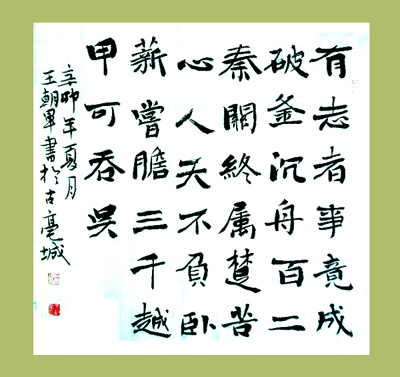 有志者事竟成
破釜沉舟百二
秦關終属楚苦
心人天不負卧
薪嘗膽三千越
甲可吞吳
辛卯年夏月
王朝軍書於古亳城